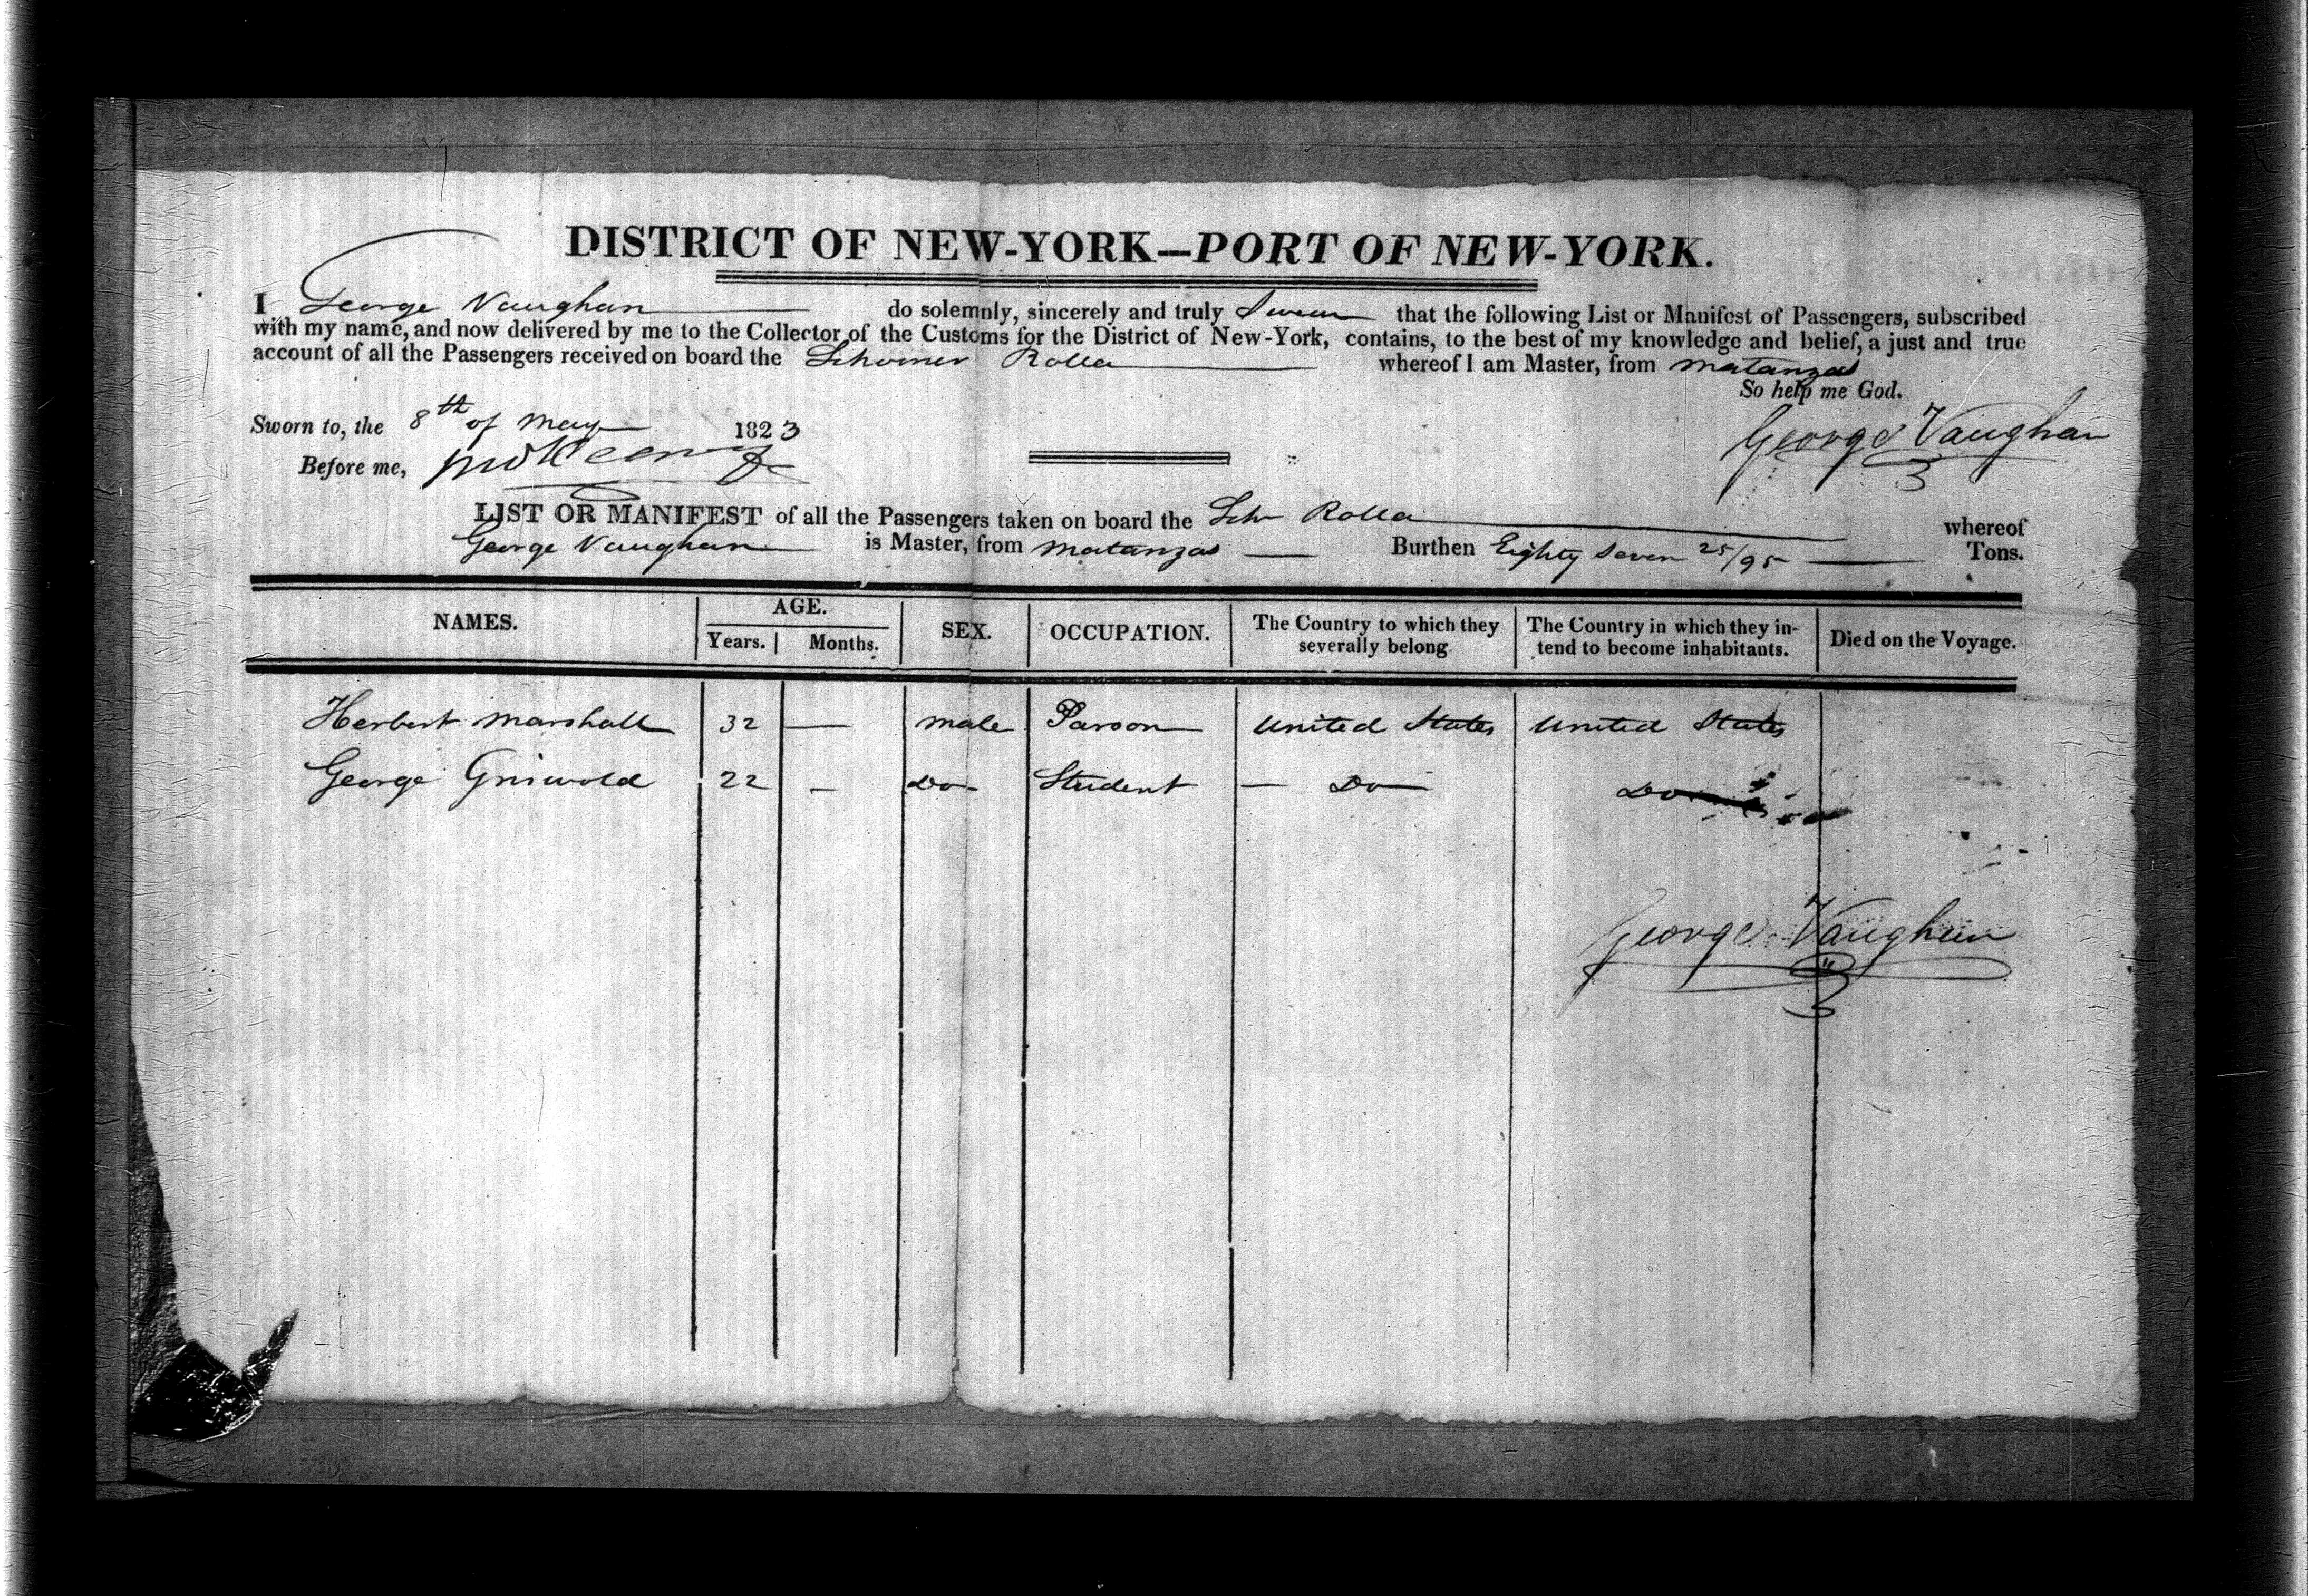 DISTRICT OF NEW-YORK—PORT OF NEW-YORK.
I George Vaughan do solemnly, sincerely and truly Swear that the following List or Manifest of Passengers, subscribed
with my name, and now delivered by me to the Collector of the Customs for the District of New-York, contains, to the best of my knowledge and belief, a just and true
account of all the Passengers received on board the Schooner Rolla whereof I am Master, from Matanzas
So help me God.
Sworn to, the 8th of May 1823
George Vaughan
Before me,
LIST OR MANIFEST of all the Passengers taken on board the Schr Rolla whereof
George Vaughan is Master, from Matanzas Burthen Eighty Seven 25/95 Tons.
NAMES. AGE. SEX. OCCUPATION. The Country to which they severally belong The Country in which they intend to become inhabitants. Died on the Voyage.
Years. Months.
Herbert Marshall 32 — male Parson United States United States
George Griswold 22 — Do- Student — Do — Do
George Vaughan